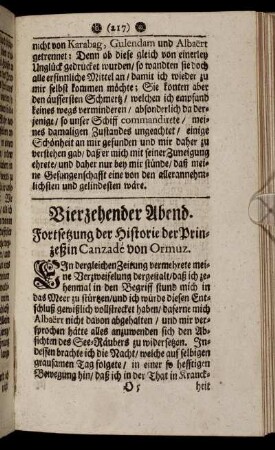 (217)
nicht von Karabag, Gulendam und Albaërt
getrennet: Denn ob diese gleich von einerley
Unglück gedrucket wurden/ so wandten sie doch
alle ersinnliche Mittel an/ damit ich wieder zu
mir selbst kommen möchte; Sie konten aber
den äussersten Schmertz/ welchen ich empfund
keines wegs vermindern/ absonderlich da der-
jenige/ so unser Schiff commandirete/ mei-
nes damaligen Zustandes ungeachtet/ einige
Schönheit an mir gefunden und mir daher zu
verstehen gab/ daß er mich mit seiner Zuneigung
ehrete/ und daher nur bey mir stünde/ daß mei-
ne Gefangenschafft eine von den allerannehm-
lichsten und gelindesten wäre.
Vierzehender Abend.
Fortsetzung der Historie der Prin-
zeßin Canzadé von Ormuz.
EIn dergleichen Zeitung vermehrete mei-
ne Verzweifelung dergestalt/ daß ich ze-
henmal in den Begriff stund mich in
das Meer zu stürtzen/ und ich würde diesen Ent-
schluß gewißlich vollstrecket haben/ daferne mich
Albaërt nicht davon abgehalten/ und mir ver-
sprochen hätte alles anzuwenden sich den Ab-
sichten des See-Räubers zu widersetzen. In-
dessen brachte ich die Nacht/ welche auf selbigen
grausamen Tag folgete/ in einer so hefftigen
Bewegung hin/ daß ich in der That in Kranck-
O 5 heit